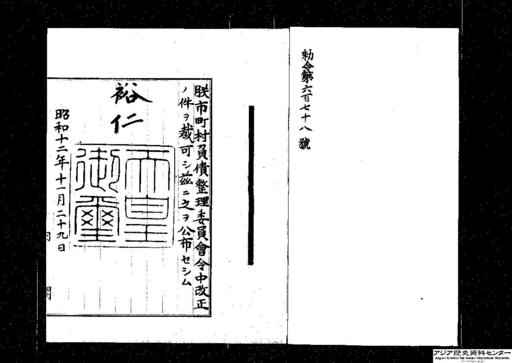 勅令第六百七十八號
朕市町村負債整理委員會令中改正
ノ件ヲ裁可シ茲ニ之ヲ公布セシム
裕仁
天皇御璽
昭和十二年十一月二十九日
アジア歴史資料センター
Japan Center for Asian Historical Records